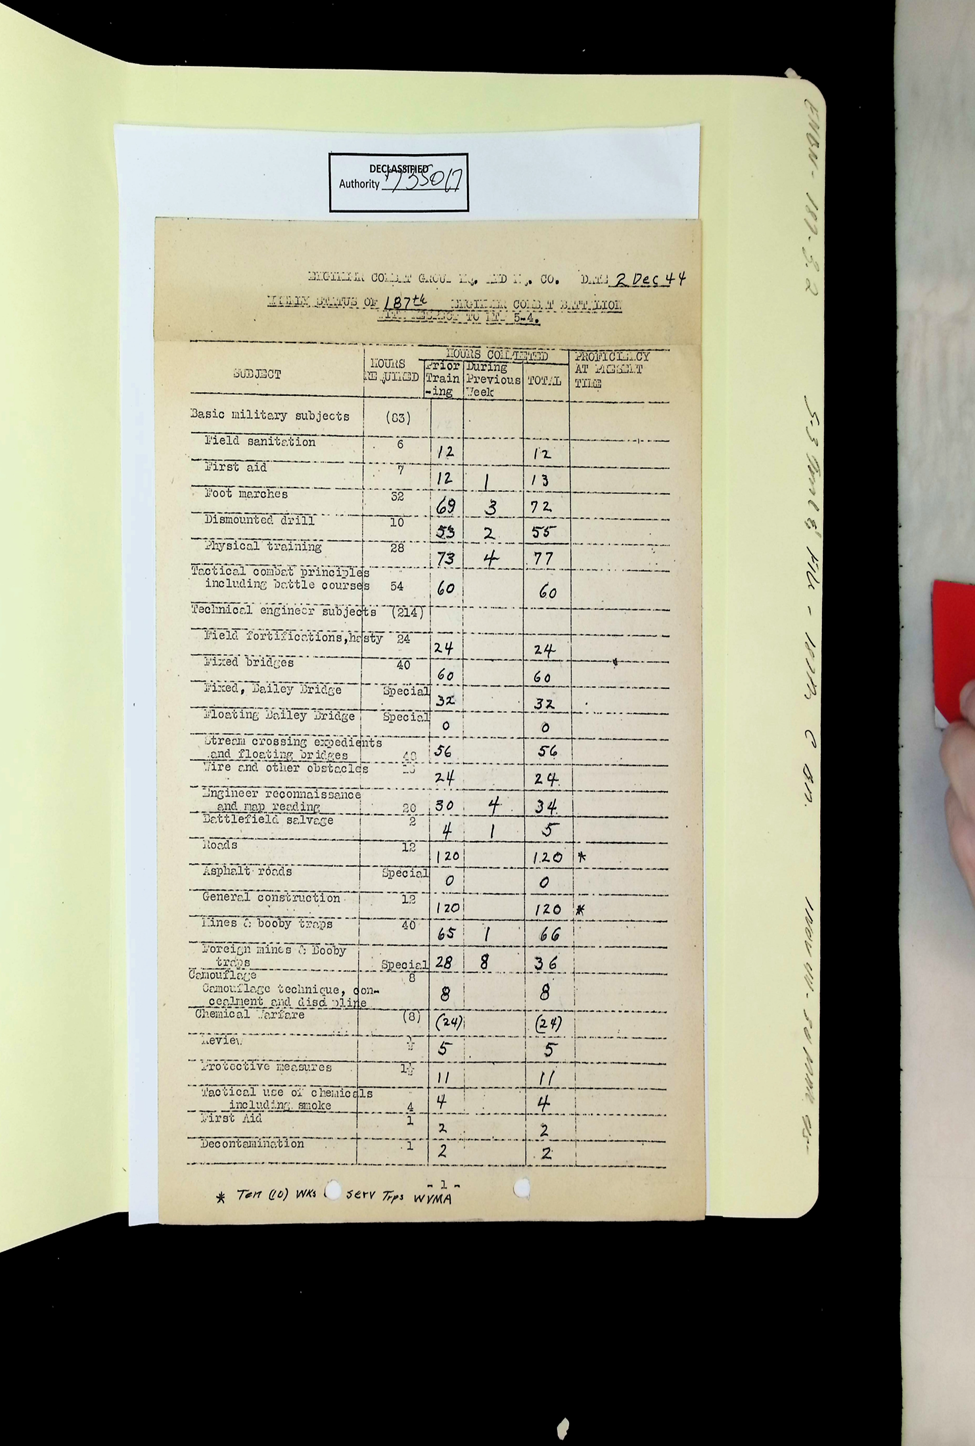 DECLASSIFIED
Authority 735017
ENGINEER COMBAT GROUP HQ. AND HQ. CO. DATE 2 Dec 44
STATUS OF 187th ENGINEER COMBAT BATTALION
WITH RESPECT TO 5-4.
SUBJECT
HOURS REQUIRED
HOURS COMPLETED
Prior Train-ing
During Previous Week
TOTAL
PROFICIENCY AT PRESENT TIME
Basic military subjects (83)
Field sanitation 6 12 12
First aid 7 12 1 13
Foot marches 32 69 3 72
Dismounted drill 10 53 2 55
Physical training 28 73 4 77
Tactical combat principles
including battle courses 54 60 60
Technical engineer subjects (214)
Field fortifications, hasty 24 24 24
Fixed bridges 40 60 60
Fixed, Bailey Bridge Special 32 32
Floating Bailey Bridge Special 0 0
Stream crossing expedients
and floating bridges 56 56
Wire and other obstacles 24 24
Engineer reconnaissance
and map reading 20 30 4 34
Battlefield salvage 2 4 1 5
Roads 12 120 120 *
Asphalt roads Special 0 0
General construction 12 120 120 *
Mines & booby traps 40 65 1 66
Foreign mines & Booby
traps Special 28 8 36
Camouflage 8
Camouflage technique, con-
cealment and discipline 8 8
Chemical Warfare (8) (24) (24)
Review 5 5
Protective measures 1½ 11 11
Tactical use of chemicals
including smoke 4 4 4
First Aid 1 2 2
Decontamination 1 2 2
- 1 -
* Ten (10) WKs serv Trps WVMA
ENBN-187-3.2